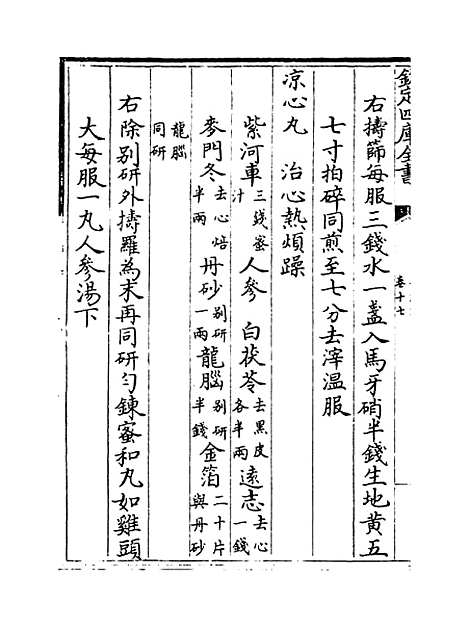 欽定四庫全書
卷十七
右擣篩每服三錢水一盞入馬牙硝半錢生地黃五
七寸拍碎同煎至七分去滓溫服
涼心丸　治心熱煩躁
紫河車三錢蜜汁人參　白茯苓去黑皮各半兩遠志去心一錢
麥門冬去心焙半兩丹砂別研一兩龍腦別研半錢金箔二十片與丹砂
龍腦同研
右除别研外擣羅為末再同研勻鍊蜜和丸如雞頭
大每服一丸人參湯下